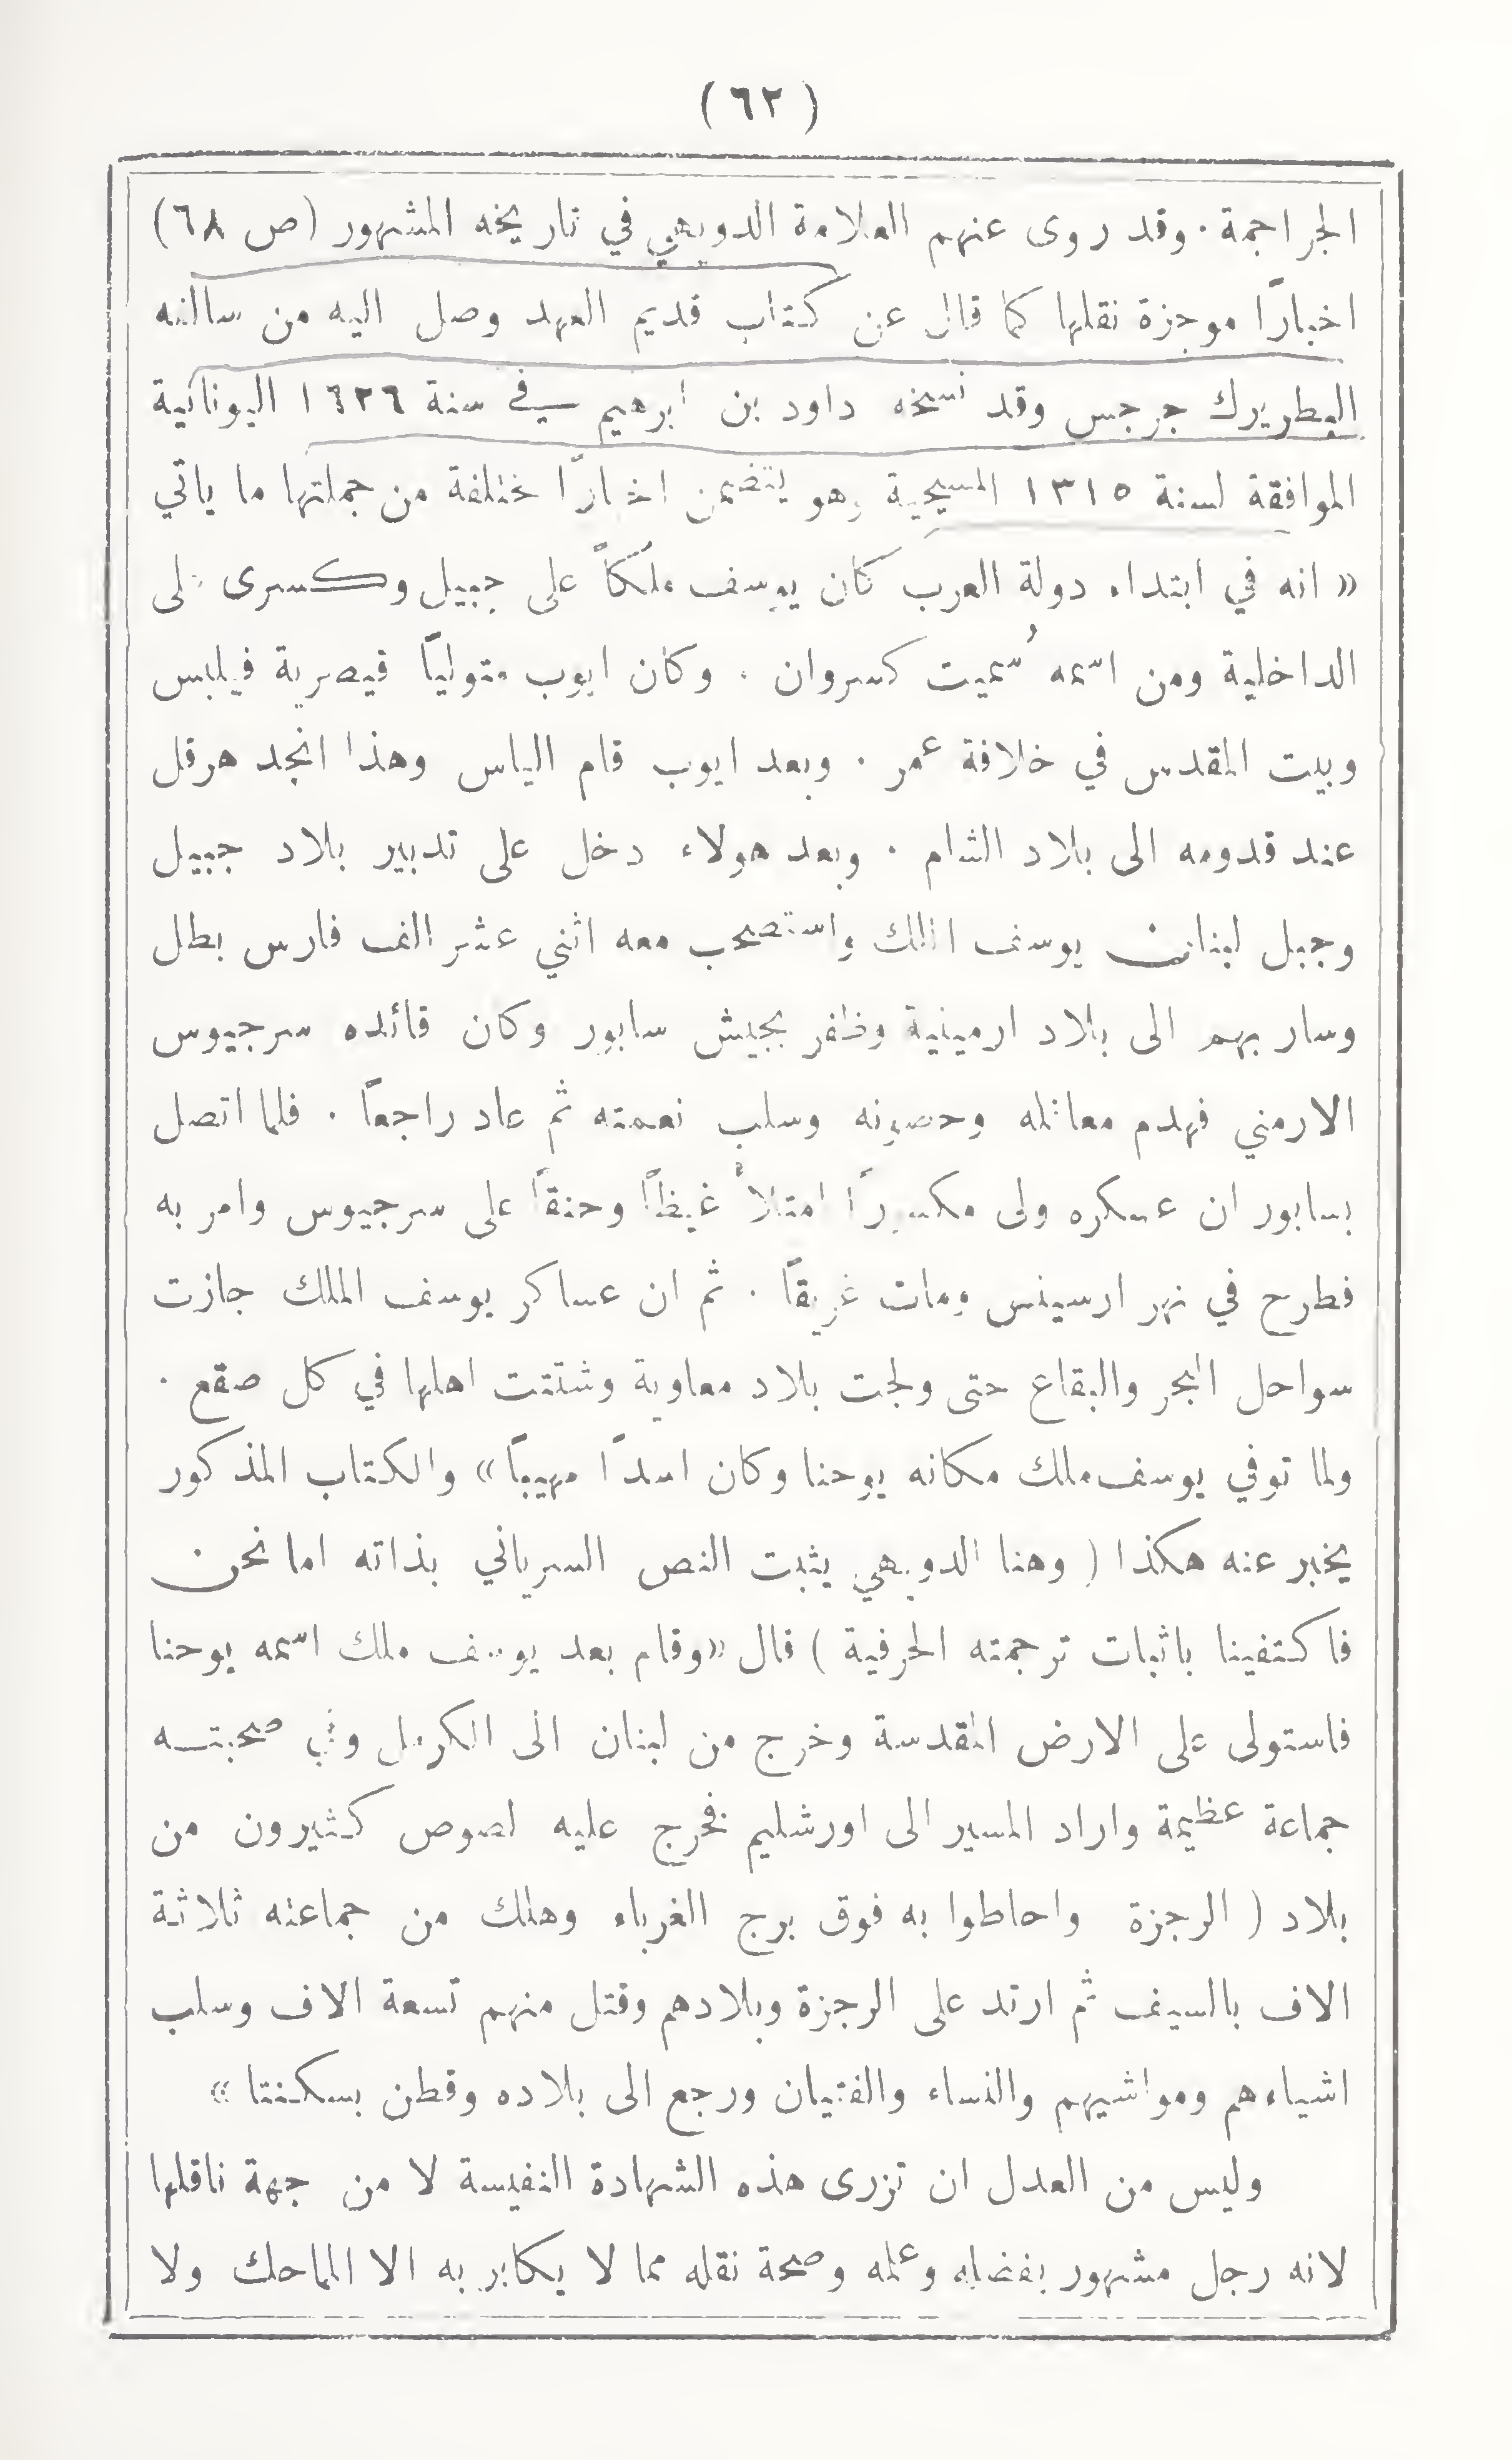 (٦٢)
الجراجمة . وقد روى عنهم العلامة الدويهي في تاريخه المشهور (ص ٦٨)
اخبارًا موجزة نقلها كما قال عن كتاب قديم العهد وصل اليه من سالفه
البطريرك جرجس وقد نسخه داود بن ابرهيم في سنة ١٦٢٦ اليونانية
الموافقة لسنة ١٣١٥ المسيحية وهو يتضمن اخبارًا مختلفة من جملتها ما ياتي
« انه في ابتداء دولة العرب كان يوسف ملكاً على جبيل وكسرى على
الداخلية ومن اسمه سُميت كسروان . وكان ايوب متولياً قيصرية فيلبس
وبيت المقدس في خلافة عمر . وبعد ايوب قام الياس وهذا انجد هرقل
عند قدومه الى بلاد الشام . وبعد هولاء دخل على تدبير بلاد جبيل
وجبل لبنان يوسف الملك واستصحب معه اثني عشر الف فارس بطل
وسار بهم الى بلاد ارمينية وظفر بجيش سابور وكان قائده سرجيوس
الارمني فهدم معاقله وحصونه وسلب نعمته ثم عاد راجعاً . فلما اتصل
بسابور ان عسكره ولى مكسورًا امتلاً غيظاً وحنقاً على سرجيوس وامر به
فطرح في نهر ارسينس ومات غريقاً . ثم ان عساكر يوسف الملك جازت
سواحل البحر والبقاع حتى ولجت بلاد معاوية وشتتت اهلها في كل صقع .
ولما توفي يوسف ملك مكانه يوحنا وكان اسدًا مهيباً » والكتاب المذكور
يخبر عنه هكذا ( وهنا الدويهي يثبت النص السرياني بذاته اما نحن
فاكتفينا باثبات ترجمته الحرفية ) قال « وقام بعد يوسف ملك اسمه يوحنا
فاستولى على الارض المقدسة وخرج من لبنان الى الكرمل وفي صحبتـه
جماعة عظيمة واراد المسير الى اورشليم فخرج عليه لصوص كثيرون من
بلاد ( الرجزة واحاطوا به فوق برج الغرباء وهلك من جماعته ثلاثة
الاف بالسيف ثم ارتد على الرجزة وبلادهم وقتل منهم تسعة الاف وسلب
اشياءهم ومواشيهم والنساء والفتيان ورجع الى بلاده وقطن بسكنتا »
وليس من العدل ان تزرى هذه الشهادة النفيسة لا من جهة ناقلها
لانه رجل مشهور بفضله وعلمه وصحة نقله مما لا يكابر به الا المماحك ولا